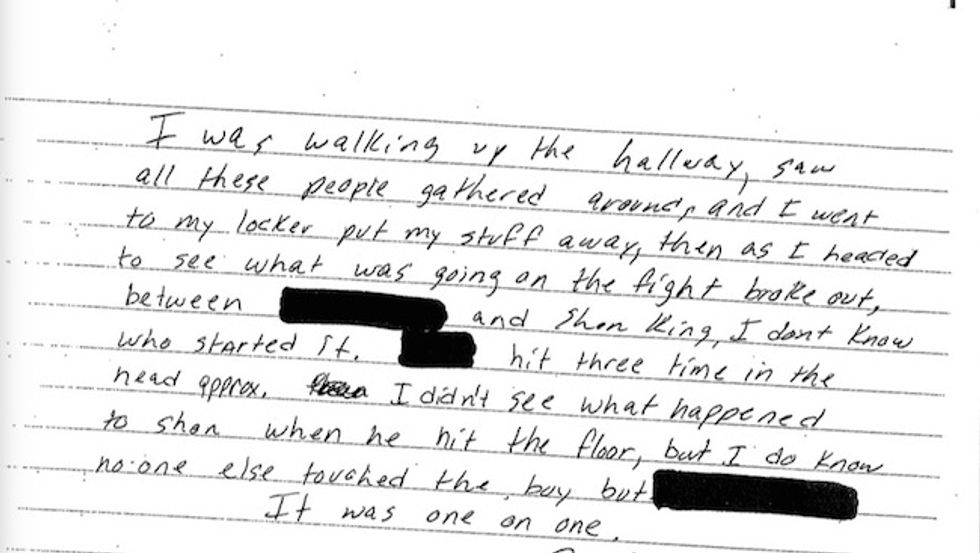 I was walking up the hallway, saw
all these people gathered around, and I went
to my locker put my stuff away, then as I headed
to see what was going on the fight broke out,
between and Shon King, I dont know
who started it. hit three time in the
head approx. I didn't see what happened
to shon when he hit the floor, but I do know
no one else touched the boy but
It was one on one.